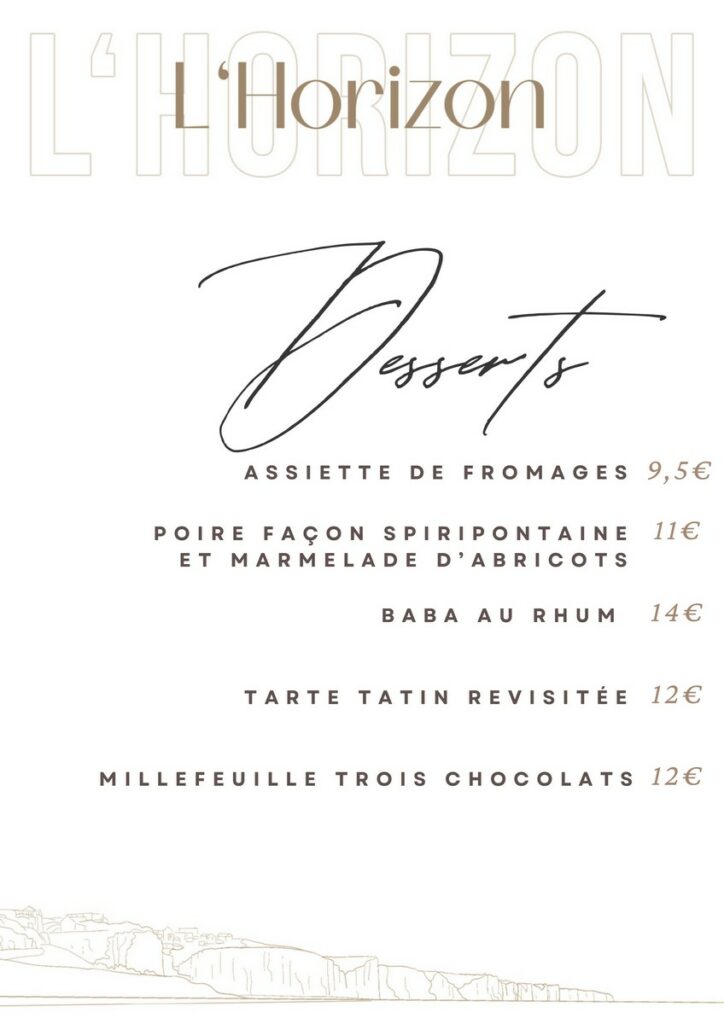 L'HORIZON
L'Horizon
Desserts
ASSIETTE DE FROMAGES 9,5€
POIRE FAÇON SPIRIPONTAINE 11€
ET MARMELADE D'ABRICOTS
BABA AU RHUM 14€
TARTE TATIN REVISITÉE 12€
MILLEFEUILLE TROIS CHOCOLATS 12€